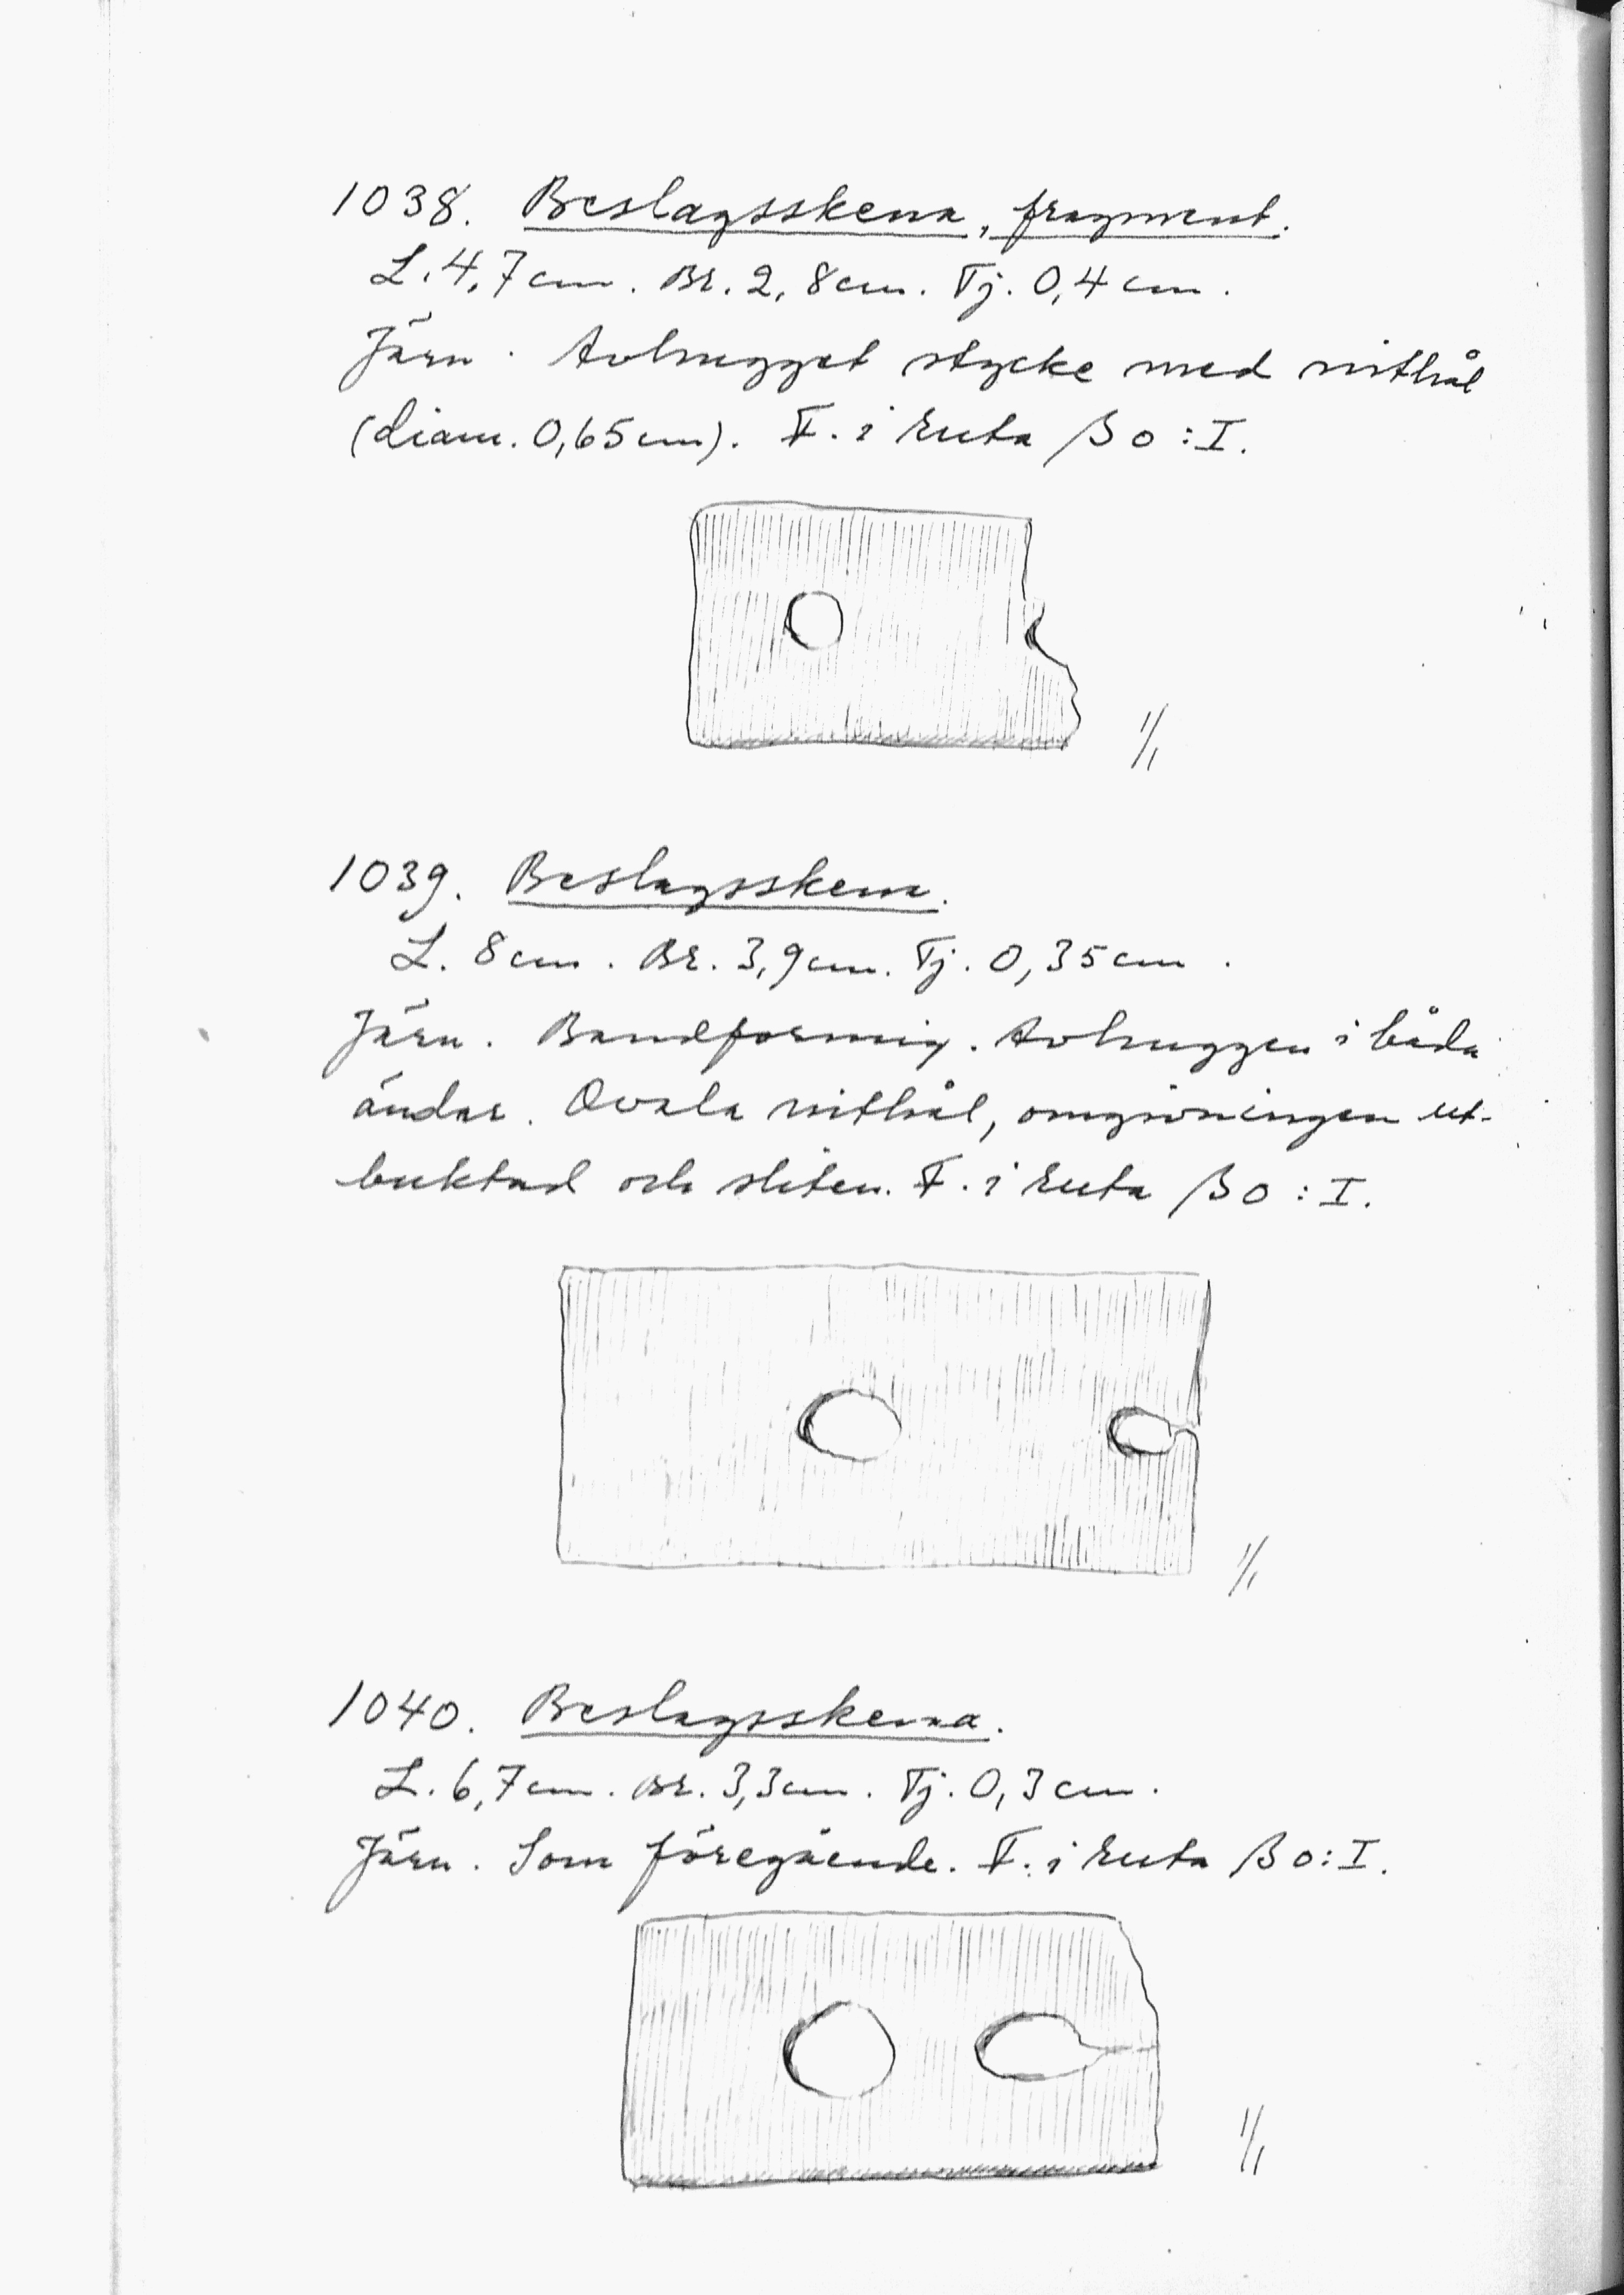 1038. Beslagsskena, fragment.
L. 4,7 cm. Br. 2,8 cm. Tj. 0,4 cm.
Järn. Avhugget stycke med nithål
(diam. 0,65 cm). F. i ruta β 0 : I.
1/1
1039. Beslagsskena.
L. 8 cm. Br. 3,9 cm. Tj. 0,35 cm.
Järn. Bandformig. Avhuggen i båda
ändar. Ovala nithål, omgivningen ut-
buktad och sliten. F. i ruta β 0 : I.
1/1
1040. Beslagsskena.
L. 6,7 cm. Br. 3,3 cm. Tj. 0,3 cm.
Järn. Som föregående. F. i ruta β 0 : I.
1/1